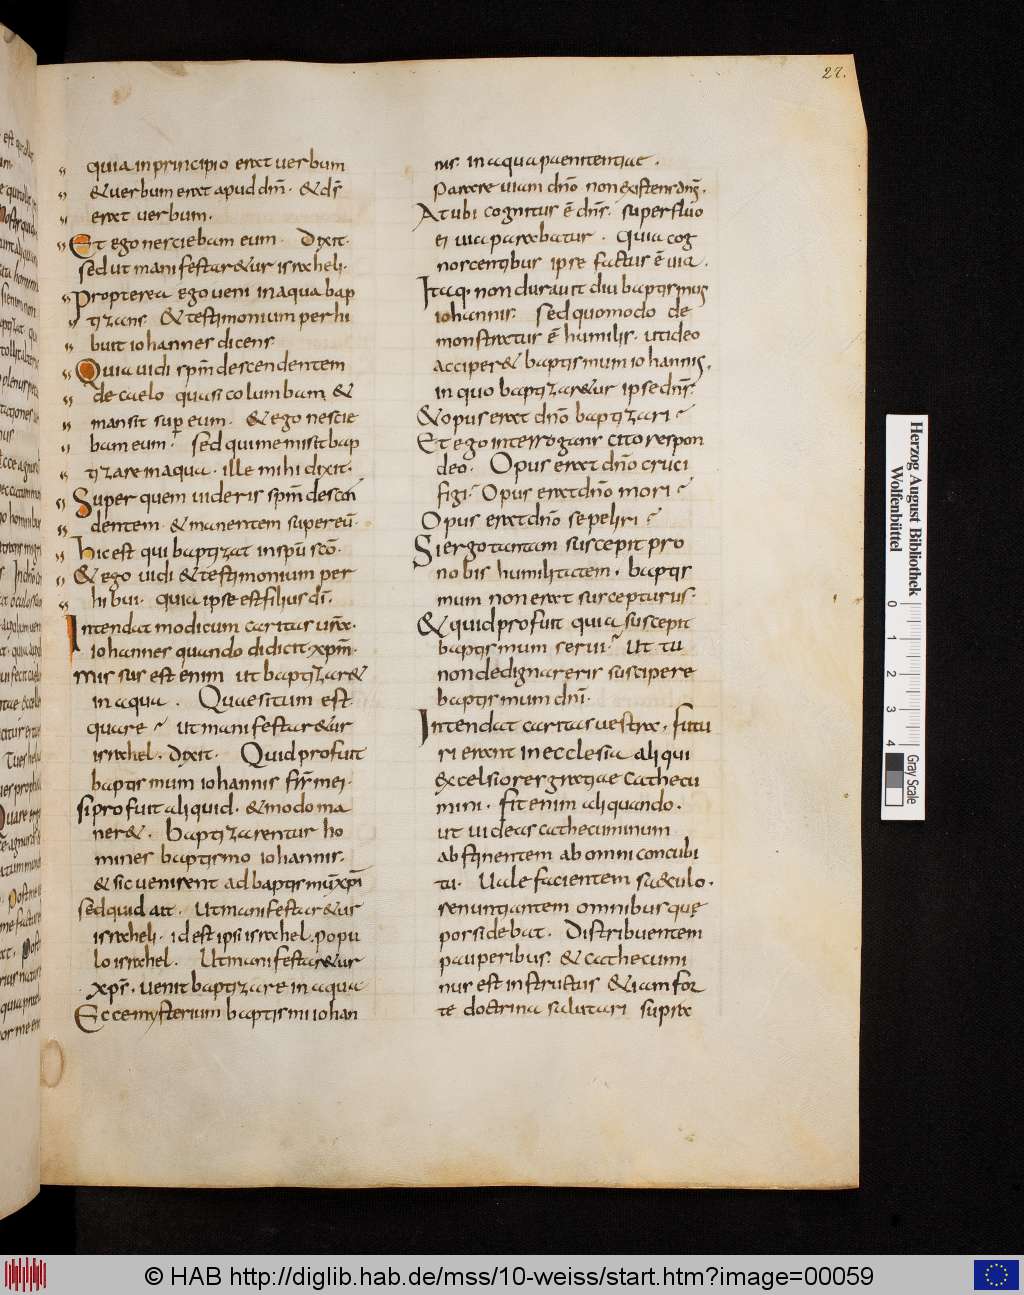 27.
quia in principio erat uerbum
& uerbum erat apud dnm̄. & ds̄
erat uerbum.
Et ego nesciebam eum. Dixit.
sed ut manifestar&ur israheli.
Propterea ego ueni in aqua bap
tizans. & testimonium perhi
buit iohannes dicens
Quia uidi spm̄ descendentem
de caelo quasi columbam. &
mansit sup eum. & ego nescie
bam eum. Sed qui me misit bap
tizare in aqua. ille mihi dixit.
Super quem uideris spm̄ descen
dentem. & manentem super eū.
hic est qui baptizat in spū scō.
& ego uidi & testimonium per
hibui. quia ipse est filius dī.
Intendat modicum caritas ur̄a.
iohannes quando didicit xpm̄.
mis sus est enim ut baptizar&
in aqua. Quaesitum est.
quare. ut manifestar&ur
israhel. Dixit. Quid profuit
baptismum iohannis fr̄s mei.
si profuit aliquid. & modo ma
ner&. Baptizarentur ho
mines baptismo iohannis.
& sic uenirent ad baptismū xpī
sed quid ait. Ut manifestar&ur
israheli. id est ipsi israhel. popu
lo israhel. Ut manifestar&ur
xps̄. uenit baptizare in aqua
Ecce mysterium baptismi iohan
nis. in aqua paenitentiae.
Parare uiam dn̄o non existens dn̄s.
At ubi cognitus ē dns̄. superfluo
ei uia parabatur. Quia cog
noscentibus ipse factus ē uia.
Itaq. non durauit diu baptismus
iohannis. Sed quomodo de
monstratur ē humilis. ut ideo
acciper& baptismum iohannis.
in quo baptizar&ur ipse dns̄.
& opus erat dn̄o baptizari
Et ego interrogans cito respon
deo. Opus erat dn̄o cruci
figi. Opus erat dn̄o mori
Opus erat dn̄o sepeliri
Si ergo tantam suscepit pro
nobis humilitatem. baptis
mum non erat suscepturus.
& quid profuit quia suscepit
baptismum serui. Ut tu
non dedignareris suscipere
baptismum dnī.
Intendat caritas uestra. futu
ri erant in ecclesia aliqui
excelsiores gratiae cathecu
mini. fit enim aliquando.
ut uideas cathecuminum
abstinentem ab omni concubi
tu. Uale facientem saeculo.
renuntiantem omnibus quę
possidebat. Distribuentem
pauperibus. & cathecumi
nus est instructus & iam for
te doctrina salutari supra
Herzog August Bibliothek
Wolfenbüttel
0 1 2 3 4
Gray Scale
© HAB http://diglib.hab.de/mss/10-weiss/start.htm?image=00059